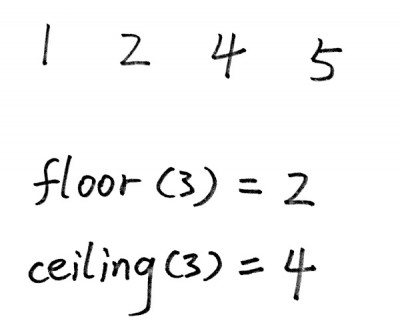 1 2 4 5
floor (3) = 2
ceiling (3) = 4